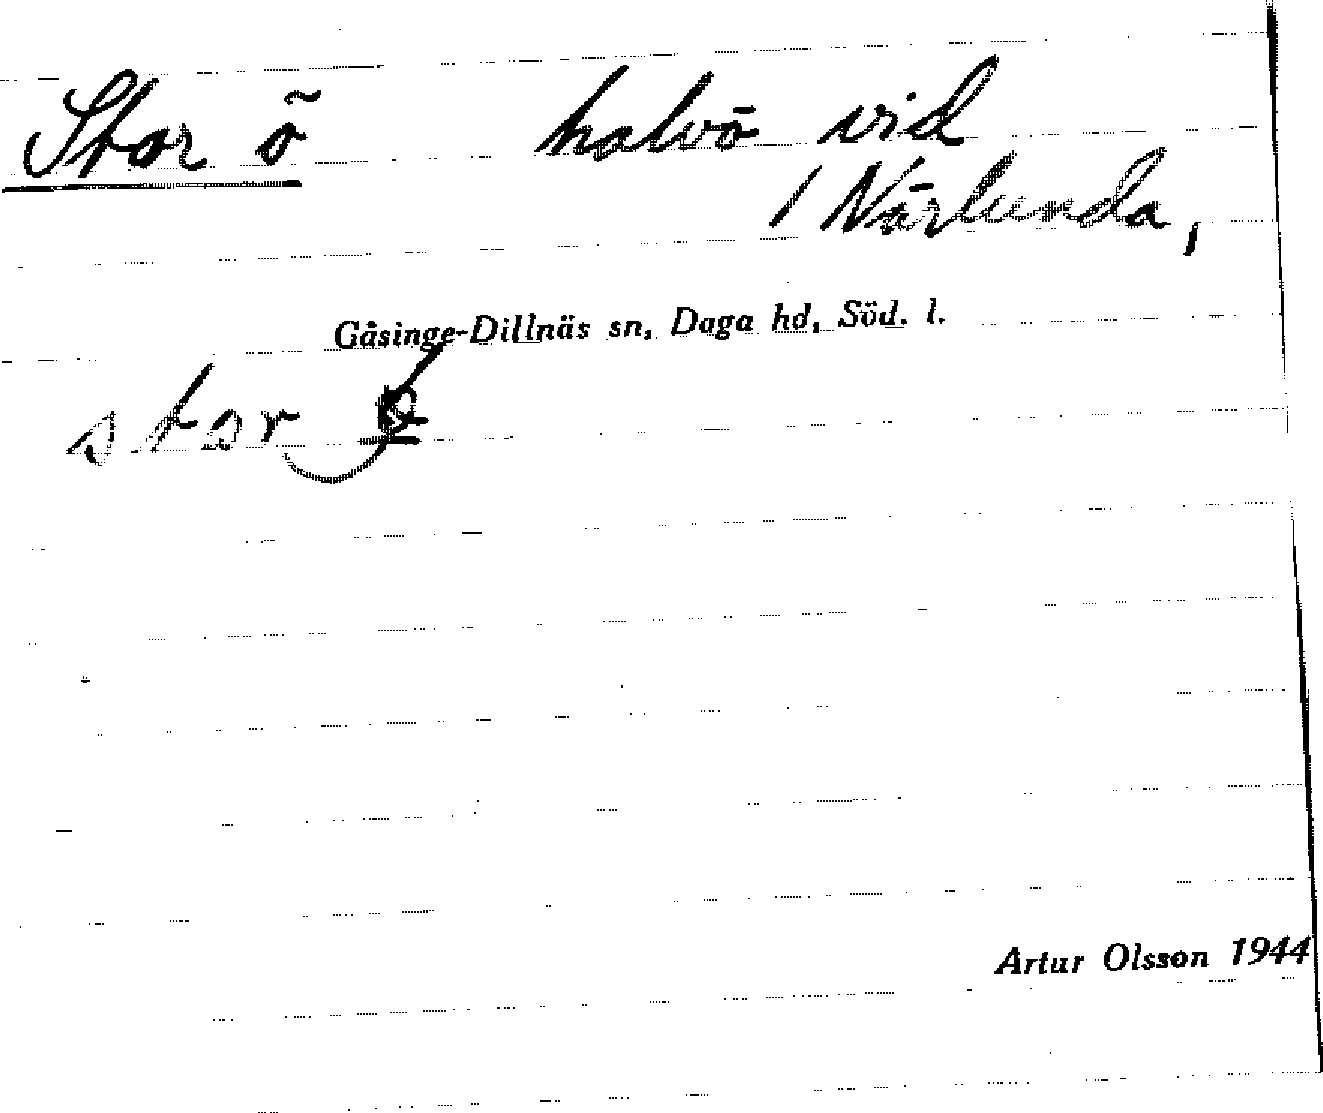 Stor ö halvö vid
/ Närlunda,
Gåsinge-Dillnäs sn, Daga hd, Söd. l.
stor
Artur Olsson 1944